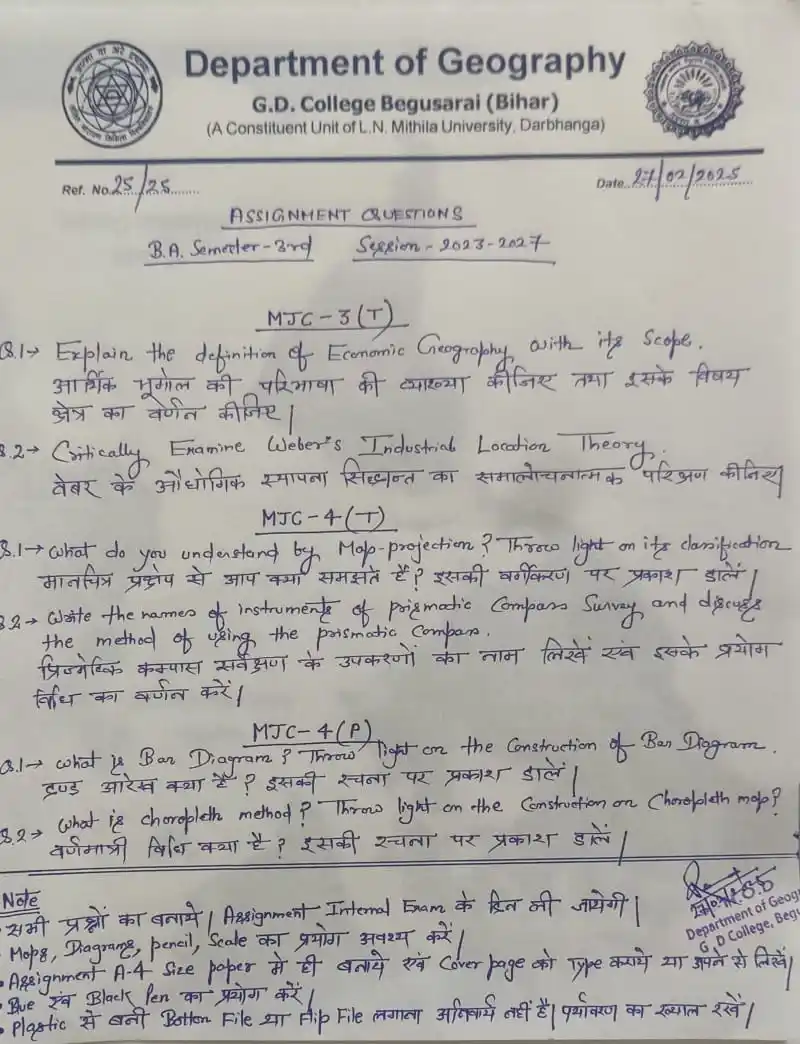 Department of Geography
G.D. College Begusarai (Bihar)
(A Constituent Unit of L.N. Mithila University, Darbhanga)
Ref. No. 25/25
Date. 27/02/2025
ASSIGNMENT QUESTIONS
B.A. Semester-3rd Session-2023-2027
MJC-3(T)
Q.1→ Explain the definition of Economic Geography with its Scope.
आर्थिक भूगोल की परिभाषा की व्याख्या कीजिए तथा इसके विषय
क्षेत्र का वर्णन कीजिए|
Q.2→ Critically Examine Weber's Industrial Location Theory.
वेबर के औधोगिक स्थापना सिध्यन्त का समालोचनात्मक परिक्षण कीजिए|
MJC-4(T)
Q.1→ What do you understand by Map-projection? Throw light on its classification
मानचित्र प्रक्षेप से आप क्या समझते हैं? इसकी वर्गीकरण पर प्रकाश डालें|
Q.2→ Write the names of instruments of prismatic Compass Survey and discuss
the method of using the prismatic Compass.
प्रिज्मेटिक कम्पास सर्वेक्षण के उपकरणों का नाम लिखें एवं इसके प्रयोग
विधि का वर्णन करें|
MJC-4(P)
Q.1→ What is Bar Diagram? Throw light on the Construction of Bar Diagram.
दण्ड आरेख क्या है? इसकी रचना पर प्रकाश डालें|
Q.2→ What is choropleth method? Throw light on the Construction on Choropleth map?
वर्णमात्री विधि क्या है? इसकी रचना पर प्रकाश डालें|
Note
• सभी प्रश्नों का बनाये| Assignment Internal Exam के दिन ली जायेगी|
• Maps, Diagrams, pencil, Scale का प्रयोग अवश्य करें|
• Assignment A-4 Size paper में ही बनाये एवं Cover page को Type कराये या अपने से लिखें|
• Blue एवं Black Pen का प्रयोग करें|
• Plastic से बनी Botton File या Flip File लगाना अनिवार्य नहीं है| पर्यावरण का ख्याल रखें|
Department of Geog
G. D College, Begu